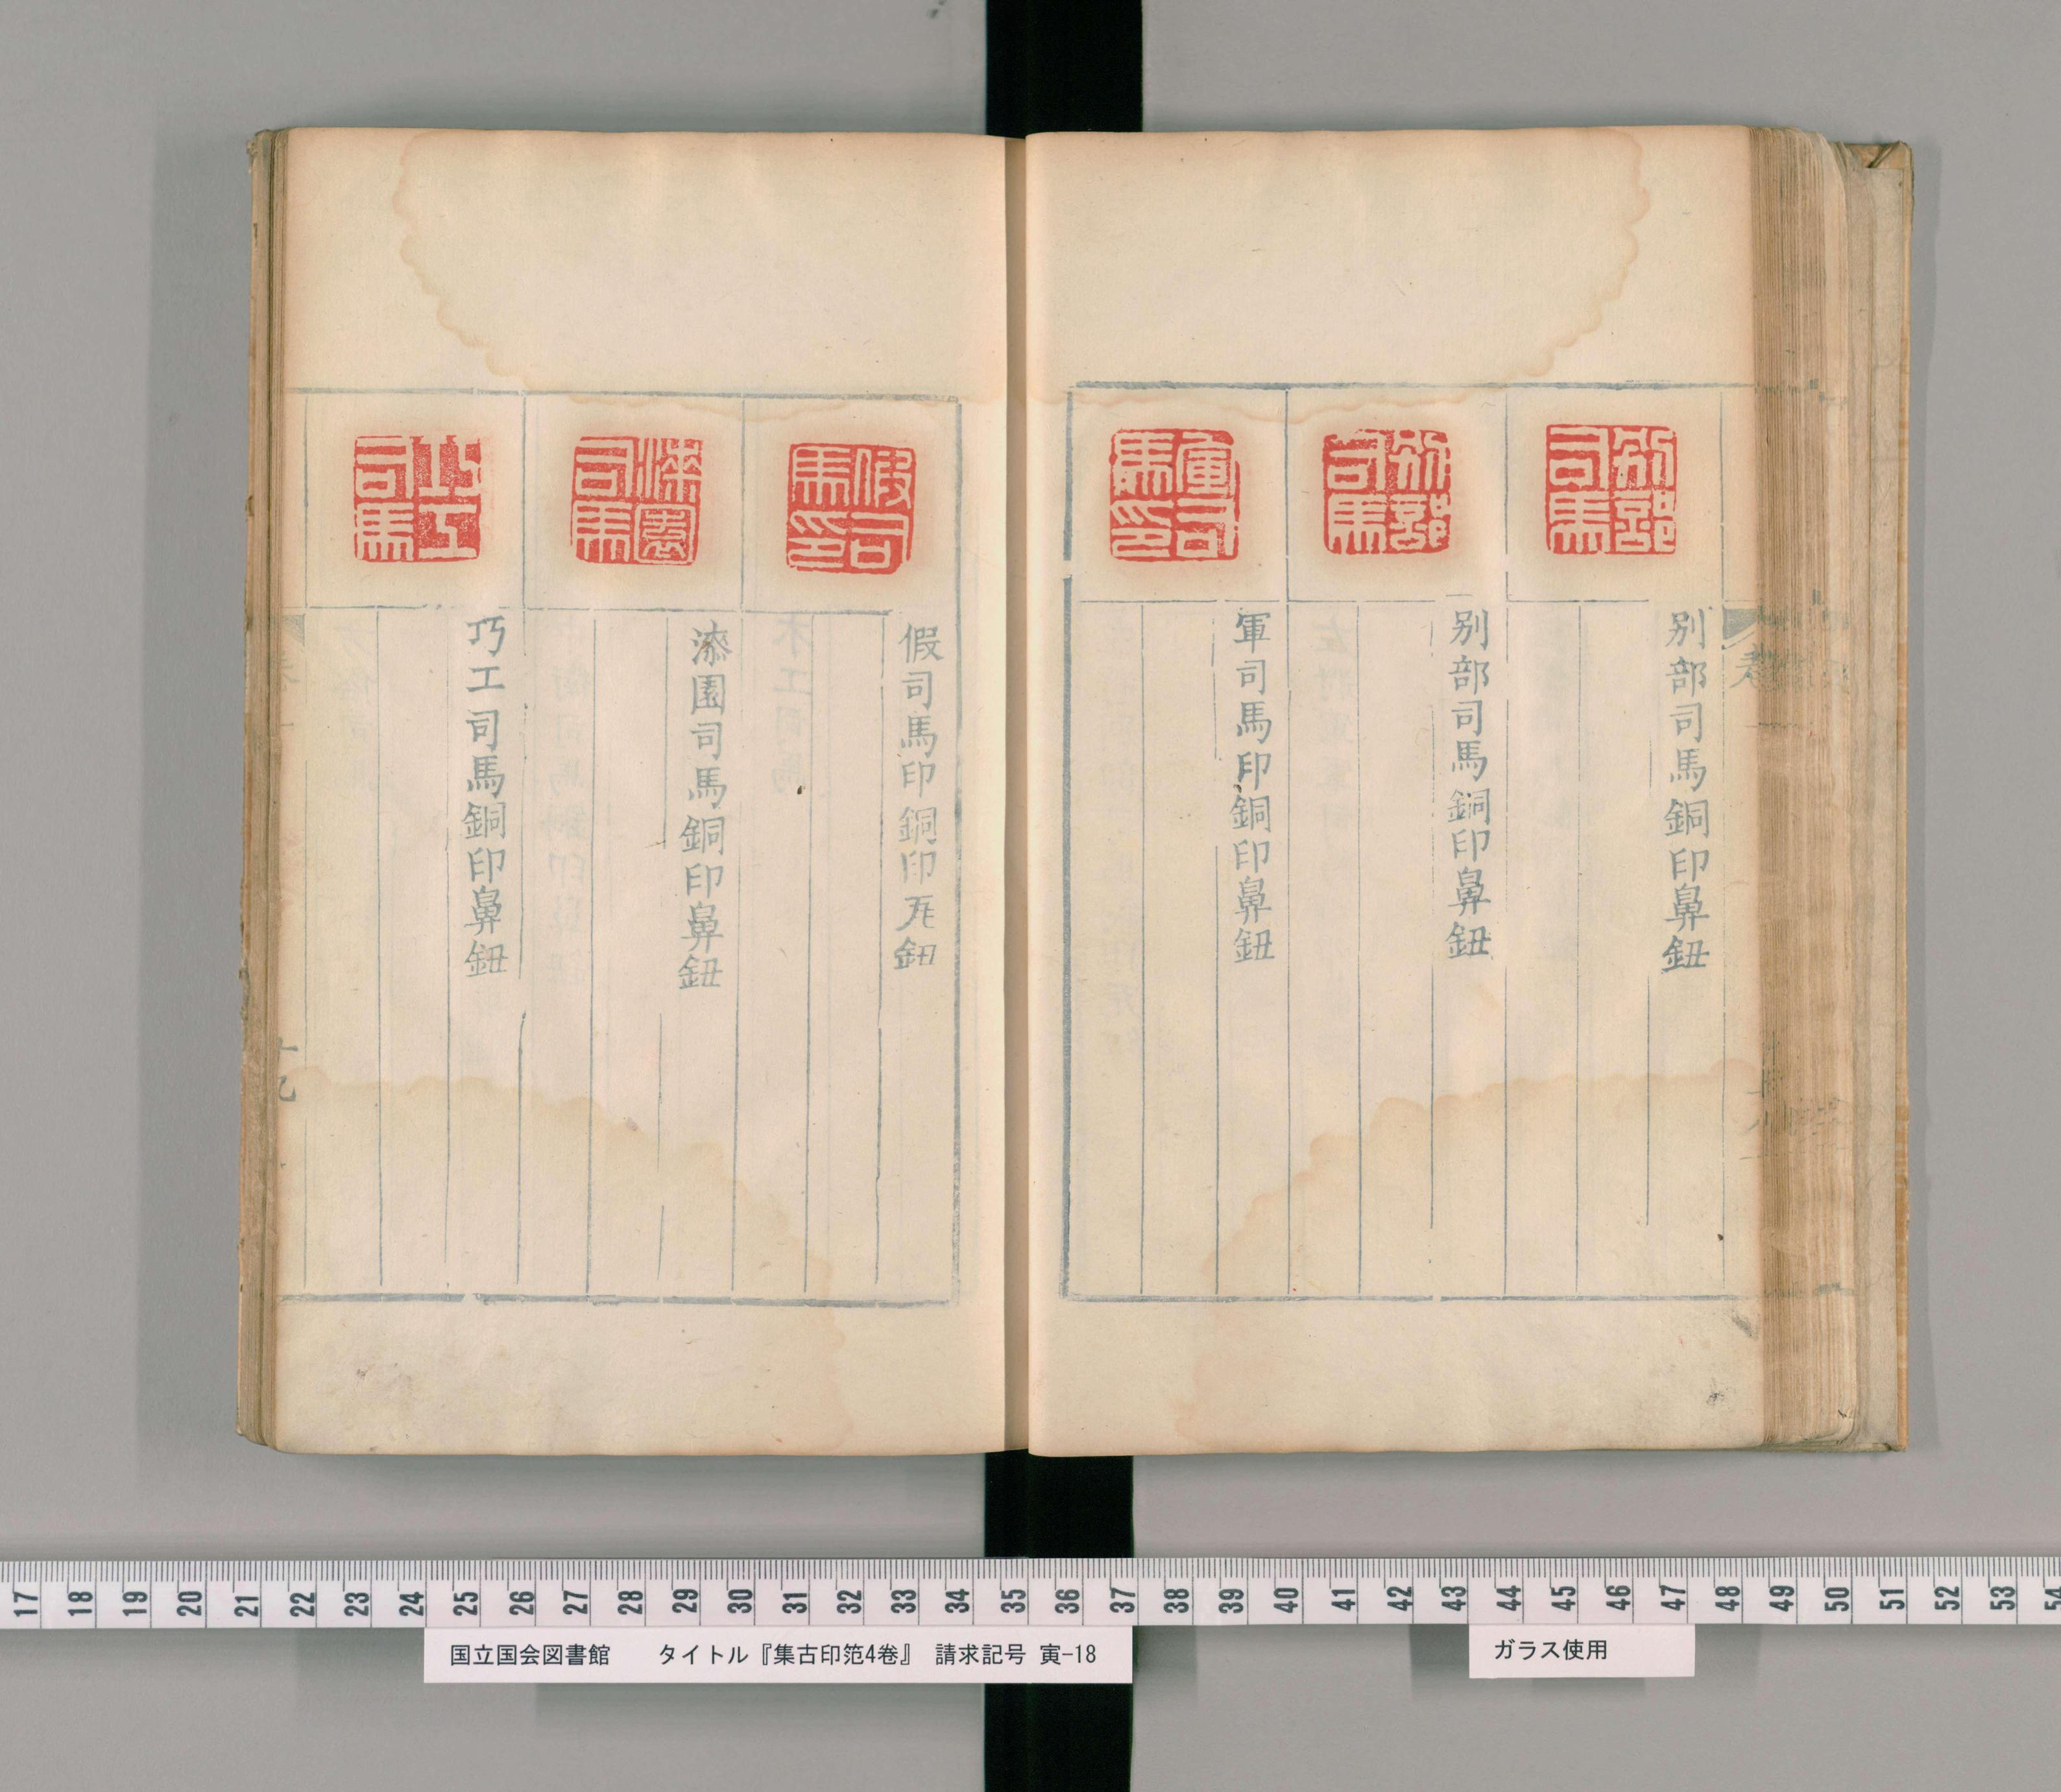 別部司馬
別部司馬銅印鼻鈕
別部司馬
別部司馬銅印鼻鈕
軍司馬印
軍司馬印銅印鼻鈕
假司馬印
假司馬印銅印瓦鈕
漆園司馬
漆園司馬銅印鼻鈕
巧工司馬
巧工司馬銅印鼻鈕
十九
17 18 19 20 21 22 23 24 25 26 27 28 29 30 31 32 33 34 35 36 37 38 39 40 41 42 43 44 45 46 47 48 49 50 51 52 53 54
国立国会図書館 タイトル『集古印笵4巻』 請求記号 寅-18
ガラス使用